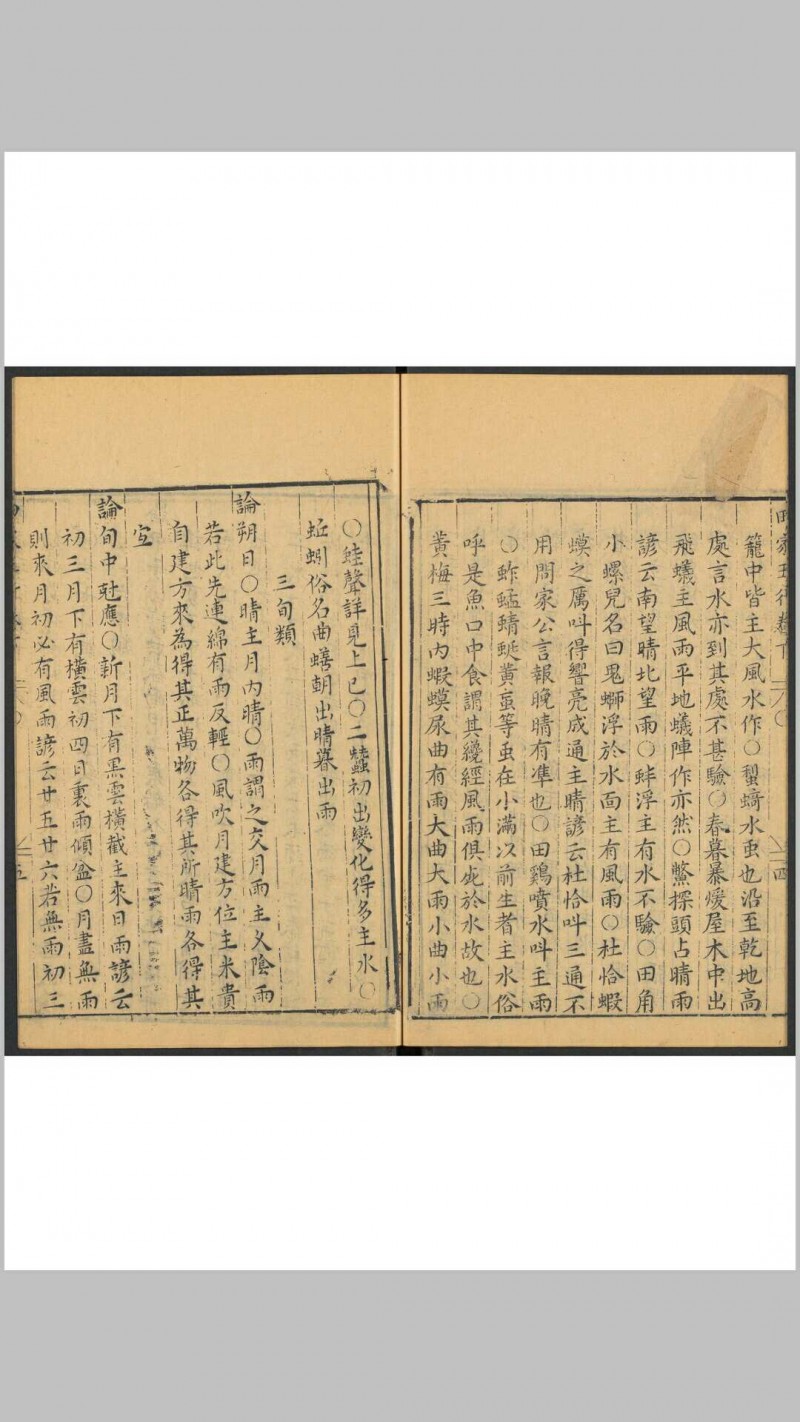 籠中皆主大風水作○䘀螪水䖝也沿至乾地高
處言水亦到其處不甚驗○春暮暴煖屋木中出
飛蟻主風雨平地蟻陣作亦然○鱉探頭占晴雨
諺云南望晴北望雨○蚌浮主有水不驗○田角
小螺兒名曰鬼螄浮於水面主有風雨○杜恰蝦
蟆之厲呌得響亮成通主晴諺云杜恰呌三通不
用問家公言報晚晴有凖也○田鷄噴水呌主雨
○蚱蜢蜻蜓黄䖟等䖝在小滿以前生者主水俗
呼是魚口中食謂其纔經風雨俱㱔於水故也○
黄梅三時内蝦蟆尿曲有雨大曲大雨小曲小雨
○蛙聲詳見上巳○二蠶初出變化得多主水○
蚯蚓俗名曲蟮朝出晴暮出雨
三旬類
論朔日○晴主月内晴○雨謂之交月雨主乂陰雨
若此先連綿有雨反輕○風吹月建方位主米貴
自建方來為得其正萬物各得其所晴雨各得其
宜
論旬中尅應○新月下有黑雲橫截主來日雨諺云
初三月下有橫雲初四日裏雨傾盆○月盡無雨
則來月初必有風雨諺云廿五廿六若無雨初三